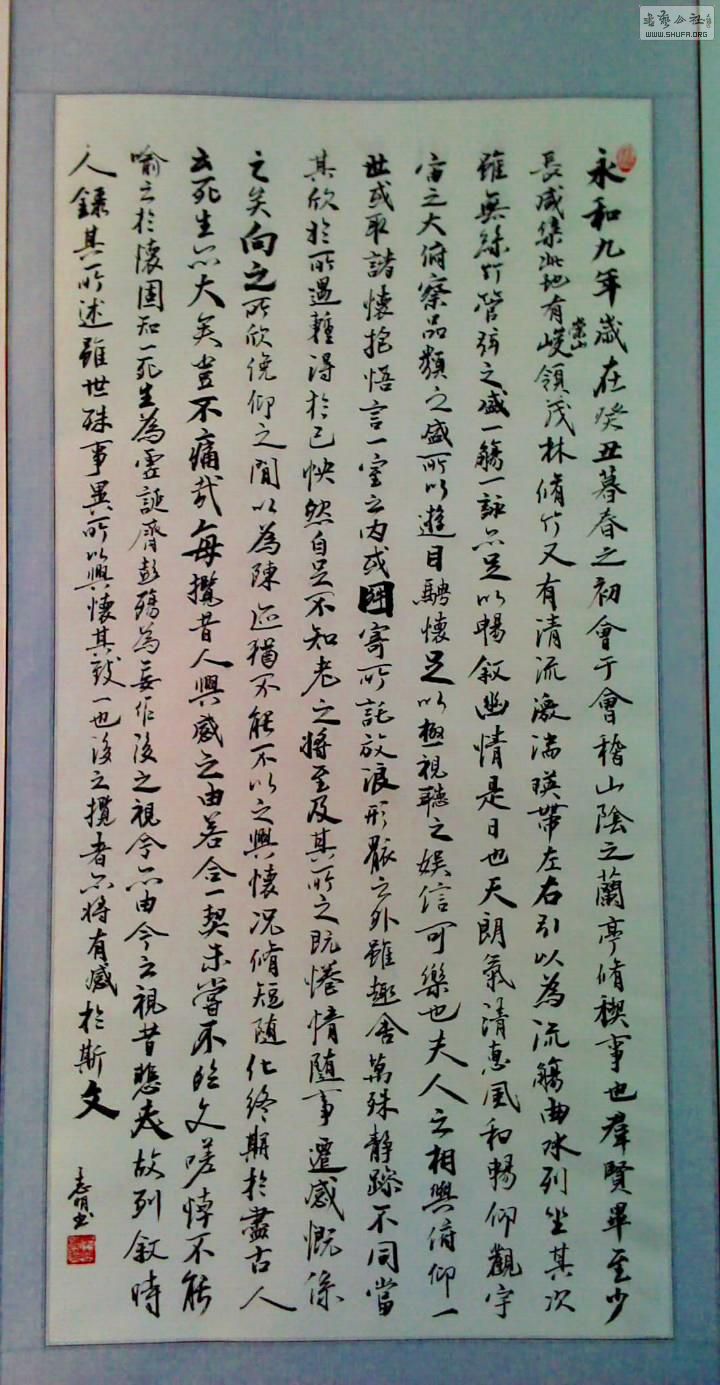 永和九年歲在癸丑暮春之初會于會稽山陰之蘭亭脩稧事也羣賢畢至少
長咸集此地有崇山峻領茂林脩竹又有清流激湍暎帶左右引以為流觴曲水列坐其次
雖無絲竹管弦之盛一觴一詠亦足以暢敘幽情是日也天朗氣清惠風和暢仰觀宇
宙之大俯察品類之盛所以遊目騁懷足以極視聽之娛信可樂也夫人之相與俯仰一
世或取諸懷抱悟言一室之內或因寄所託放浪形骸之外雖趣舍萬殊靜躁不同當
其欣於所遇蹔得於己怏然自足不知老之將至及其所之既惓情隨事遷感慨係
之矣向之所欣俛仰之閒以為陳迹猶不能不以之興懷况脩短隨化終期於盡古人
云死生亦大矣豈不痛哉每攬昔人興感之由若合一契未嘗不臨文嗟悼不能
喻之於懷固知一死生為虛誕齊彭殤為妄作後之視今亦由今之視昔悲夫故列敘時
人錄其所述雖世殊事異所以興懷其致一也後之攬者亦將有感於斯文
書藝公社
WWW.SHUFA.ORG